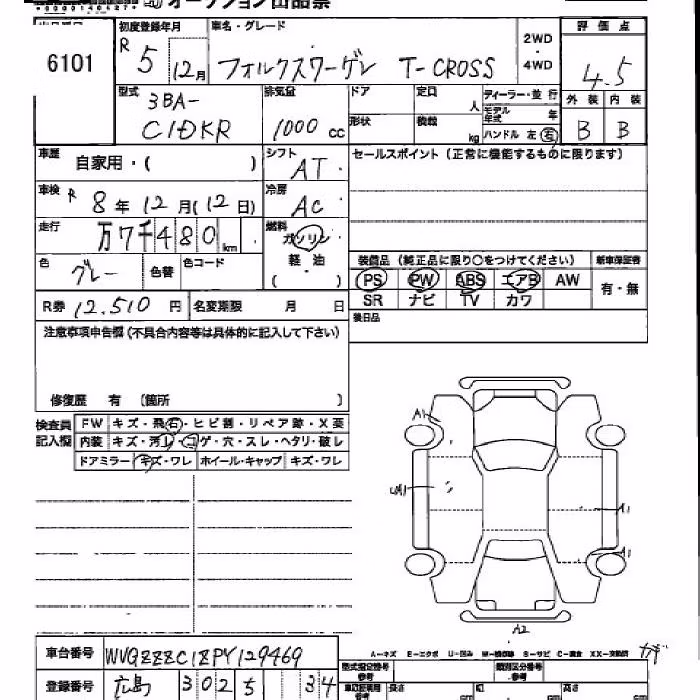 オークション出品票
6101
初度登録年月 車名・グレード 2WD・4WD 評価点
R 5 12月 フォルクスワーゲン T-CROSS 4.5
型式 3BA- C1DKR 排気量 1000 cc ドア 定員 人 ディーラー・並行 外装 内装
形状 積載 kg モデル年式 年 ハンドル 左 右 B B
車歴 自家用・( ) シフト AT セールスポイント(正常に機能するものに限ります)
車検 R 8年 12月(12日) 冷房 AC
走行 万7千480km 燃料 ガソリン 軽・油 ( )
色 グレー 色替 色コード
装備品(純正品に限り○をつけてください) 新車保証書
PS PW ABS エアB AW 有・無
SR ナビ TV カワ
R券 12,510 円 名変期限 月 日 後日品
注意事項申告欄(不具合内容等は具体的に記入して下さい)
修復歴 有 (箇所 )
検査員記入欄 FW キズ・飛石・ヒビ割・リペア跡・X要
内装 キズ・汚レ・コゲ・穴・スレ・ヘタリ・破レ
ドアミラー キズ・ワレ ホイール・キャップ キズ・ワレ
A1
A1
A1
A2
A-キズ E-エクボ U-凹み W-補修跡 S-サビ C-腐食 XX-交換済
車台番号 WVGZZZC1ZPY129469
登録番号 広島 302 5 34
型式指定番号 参考 類別区分番号 参考
長さ 幅 高さ